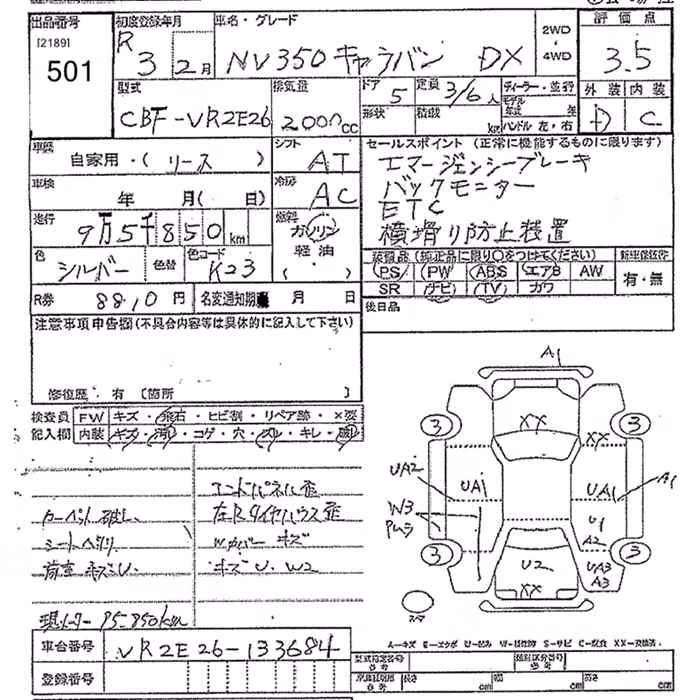 出品番号 初度登録年月 車名・グレード 評価点
[2189] 501 R3 2月 NV350キャラバン DX 2WD・4WD 3.5
型式 排気量 ドア 5 定員 3/6人 ディーラー・並行 外装 内装
CBF-VR2E26 2000cc 形状 積載 kg モデル年式 年 ハンドル 左・右 D C
車歴 自家用・(リース) シフト AT セールスポイント (正常に機能するものに限ります)
エマージェンシーブレーキ
車検 年 月(日) 冷房 AC バックモニター
ETC
走行 9万5千850km 燃料 ガソリン 軽油 ( ) 横滑り防止装置
色 シルバー 色替 色コード K23 装備品 (純正品に限り○をつけてください) 新車保証書
PS PW ABS エアB AW 有・無
R券 8810円 名変通知期 月 日 SR ナビ TV カワ
注意事項申告欄(不具合内容等は具体的に記入して下さい) 後日品
修復歴・有 [箇所 ]
検査員 FW キズ・飛石・ヒビ割・リペア跡・×要
記入欄 内装 キズ・汚れ・コゲ・穴・スレ・キレ・破れ
エンドパネル歪
カーペット破れ 左Rタイヤハウス歪
シートヘタリ Wカバー キズ
荷室 キズU キズU W2
現メーター 95-850km
車台番号 VR2E26-133684
登録番号
A1
3 XX XX 3
UA2 UA1 UA1 A1
W3 U1
A2
3 U2 UA3 3
XX A3
スペア
A-キズ E-エクボ U-凹み W-補修跡 S-サビ C-腐食 XX-交換済
型式指定番号 類別区分番号
長さ cm 幅 cm 高さ cm